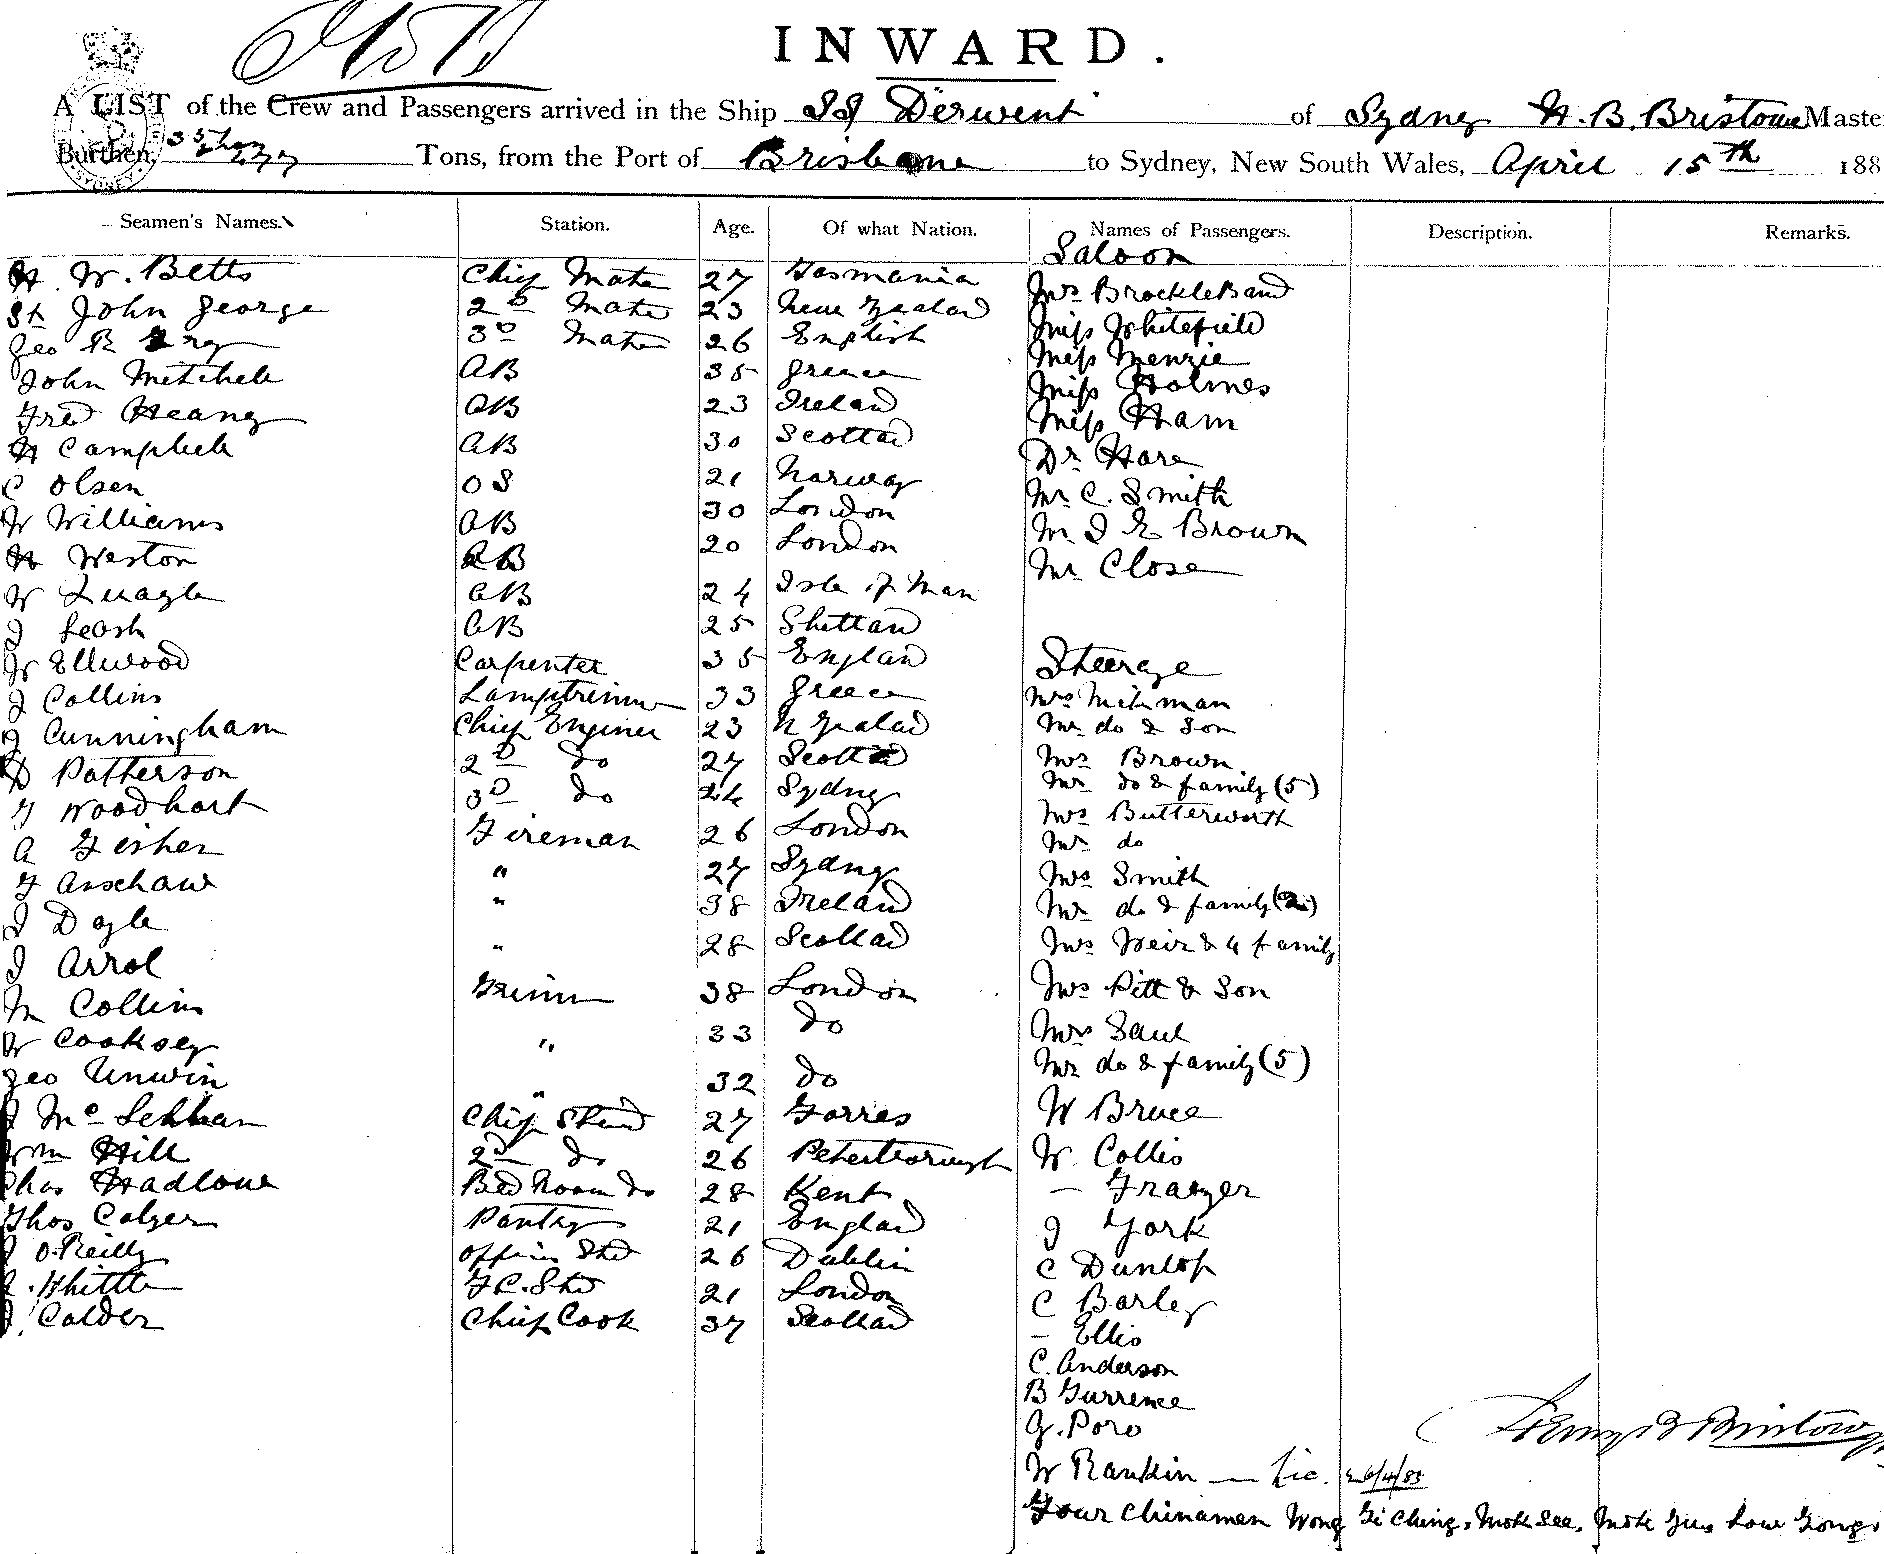 INWARD.
A LIST of the Crew and Passengers arrived in the Ship SS Derwent of Sydney H. B. Bristowe Maste
Burthen, Tons, from the Port of Brisbane to Sydney, New South Wales, April 15th 188
Seamen's Names. Station. Age. Of what Nation. Names of Passengers. Description. Remarks.
Saloon
H. W. Betts Chief Mate 27 Tasmania Mrs Brockleband
St John George 2D Mate 23 New Zealad Miss Whitefield
Geo R 3D Mate 26 English Miss Menzie
John Mitchell AB 35 Greece Miss Holmes
Fred Heany AB 23 Ireland Miss Ham
H Campbell AB 30 Scottad Dr Hare
C Olsen OS 21 Norway Mr C. Smith
W Williams AB 30 London Mr J E Brown
H Weston AB 20 London Mr Close
W Quagle AB 24 Isle of Man
J Leash AB 25 Shettand
W Ellwood Carpenter 35 England Steerage
J Collins Lamptrimmer 33 Greece Mrs
J Cunningham Chief Enginer 23 N Zealad Mr do & Son
D Patterson 2D do 27 Scottd Mrs Brown
F Woodhart 3D do 24 Sydney Mr do & family (5)
A Fisher Fireman 26 London Mrs Butterworth
Mr do
F Anschaw " 27 Sydney Mrs Smith
J Doyle " 38 Ireland Mr do & family (2)
J Arrol " 28 Scottad Mrs Weir & 4 family
M Collins Trimmer 38 London Mrs Pitt & Son
W Cooksey " 33 do Mrs Saul
Geo Unwin " 32 do Mr do & family (5)
J Mc Lennan Chief Stewd 27 Forres W Bruce
Wm Hill 2D do 26 Peterborough W. Collis
Chas Hadlow Bed Room do 28 Kent — Frazer
Thos Calger Pantry 21 Englad J York
J O'Reilly Officers Std 26 Dublin C Dunlop
. Whittle F C. Std 21 London C Barley
J. Calder Chief Cook 37 Scottad — Ellis
C. Anderson
B Gurrence
G. Poro
W Rankin — Lic. 26/4/83
Henry B Bristow
Four Chinamen Wong Gi Ching, Mok See, Mok Gus Low Gong